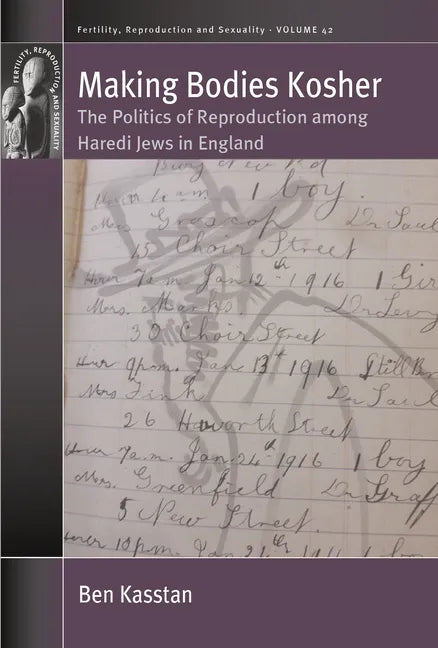 Fertility, Reproduction and Sexuality · VOLUME 42
FERTILITY, REPRODUCTION, AND SEXUALITY
Making Bodies Kosher
The Politics of Reproduction among
Haredi Jews in England
Bury New Rd
4 a.m. 1 boy.
Mrs Groscop Dr Saul
15 Choir Street
Hour 7 a.m. Jan 12th 1916 1 Gir
Mrs. Marks. Dr Levy
30 Choir Street
Hour 9 p.m. Jan 13th 1916 Still Bo
Mrs Fink Dr Saul
26 Haworth Street
Hour 7 a.m. Jan. 24th 1916 1 boy
Mrs. Greenfield Dr Graff
5 New Street.
Hour 10 p.m. Jan
Ben Kasstan